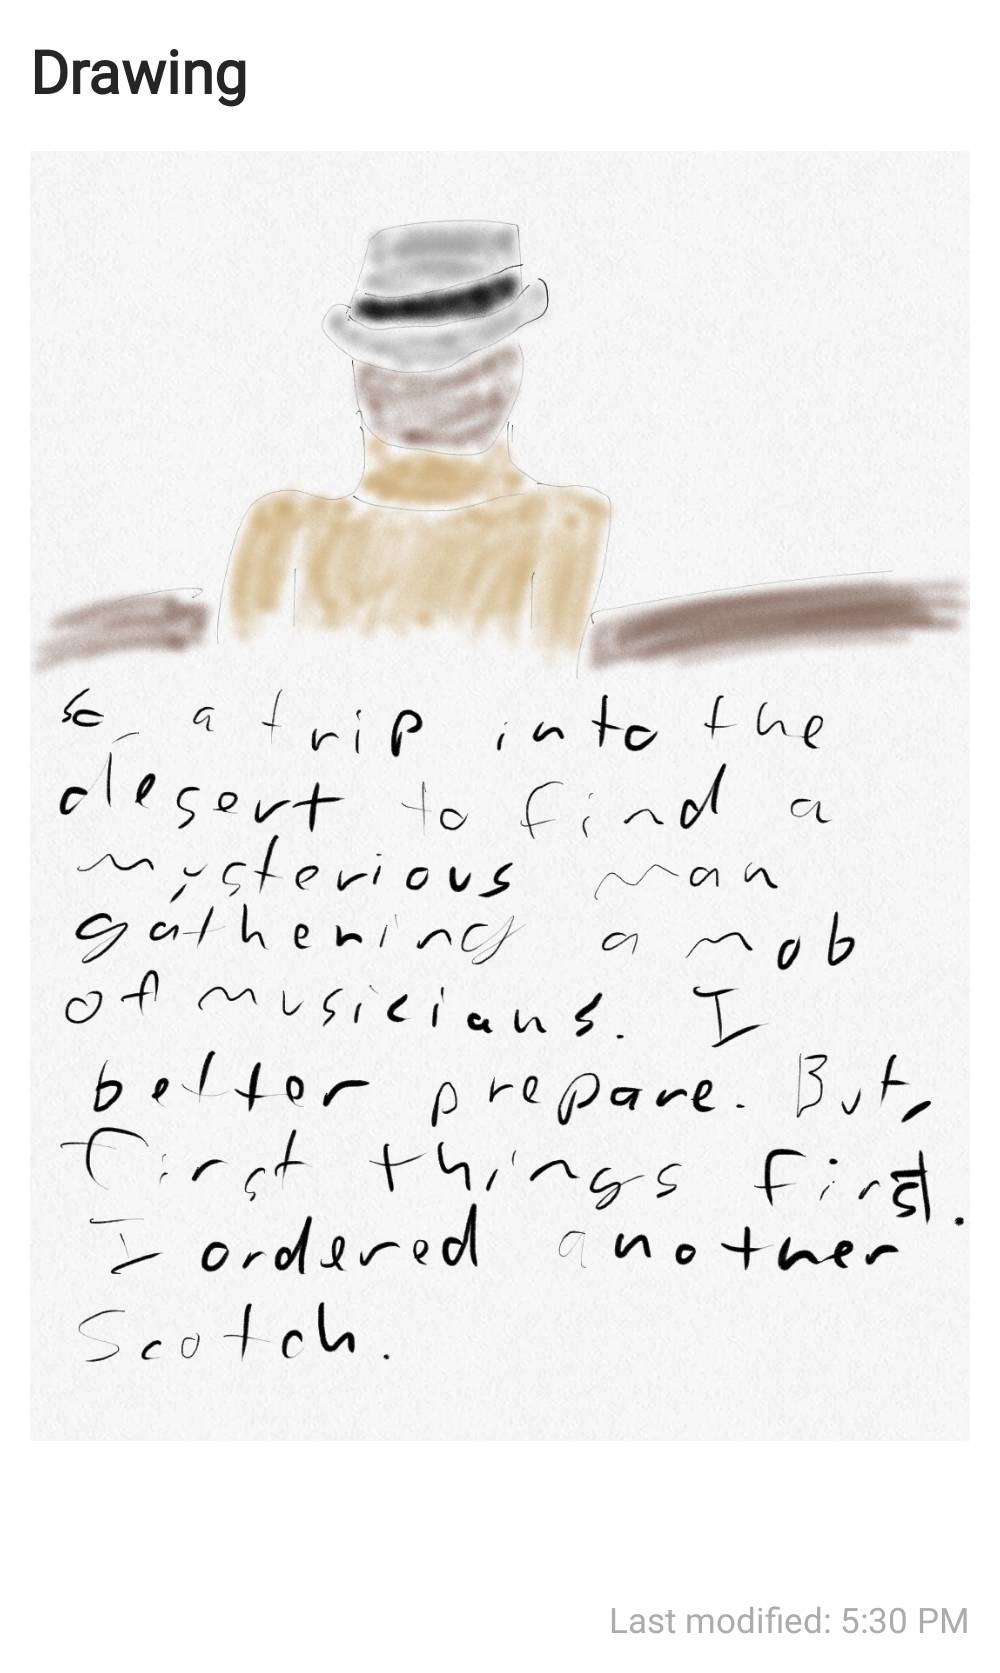 Drawing
So, a trip into the
desert to find a
mysterious man
gathering a mob
of musicians. I
better prepare. But,
first things first.
I ordered another
Scotch.
Last modified: 5:30 PM